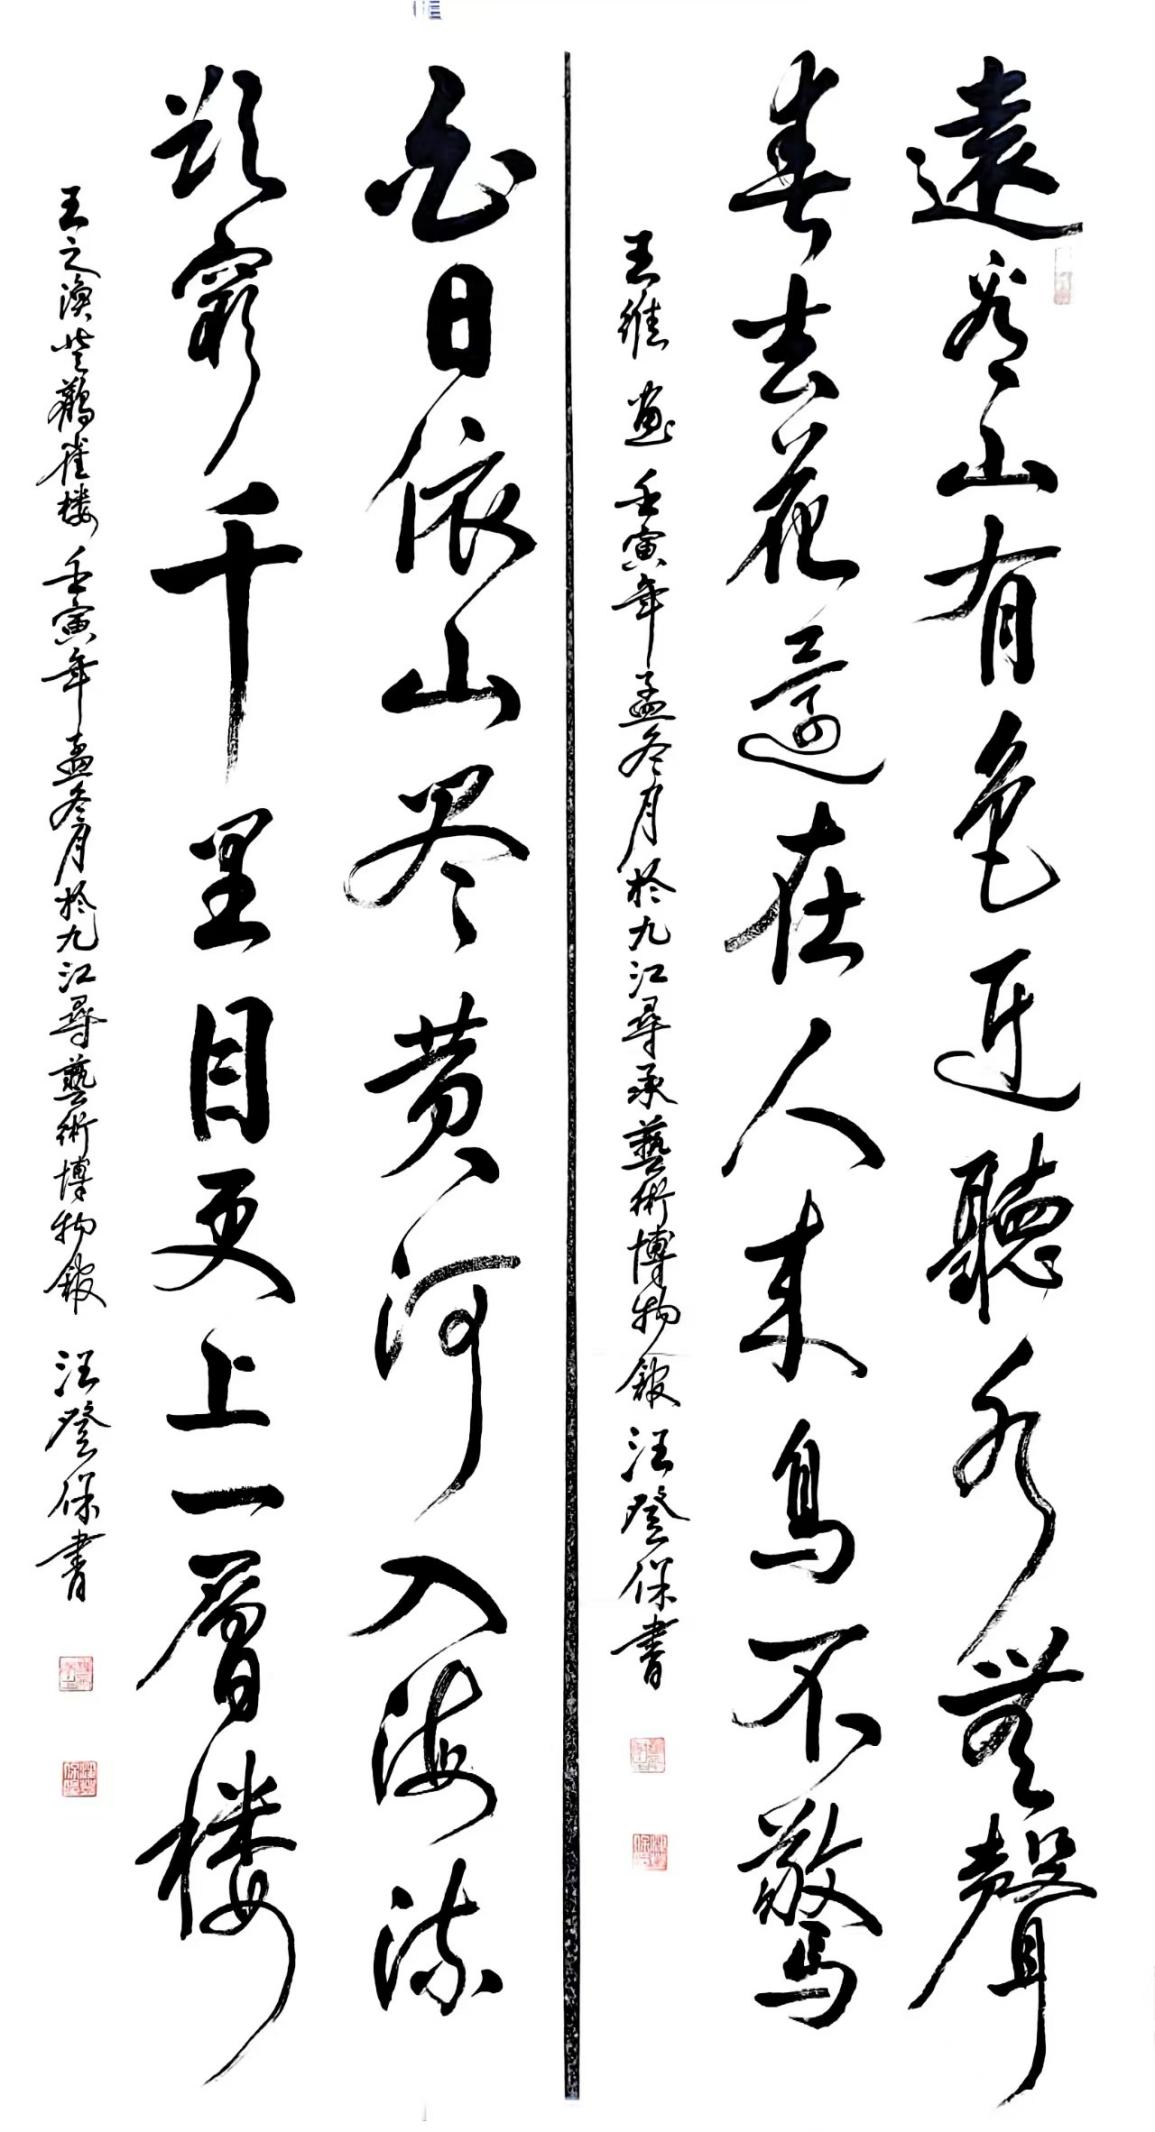 遠看山有色近聽水無聲
春去花還在人来鳥不驚
王維 畫 壬寅年孟冬月於九江尋承藝術博物館 汪登保書
白日依山尽黄河入海流
欲窮千里目更上一層楼
王之渙登鸛雀楼 壬寅年孟冬月於九江尋藝術博物館 汪登保書